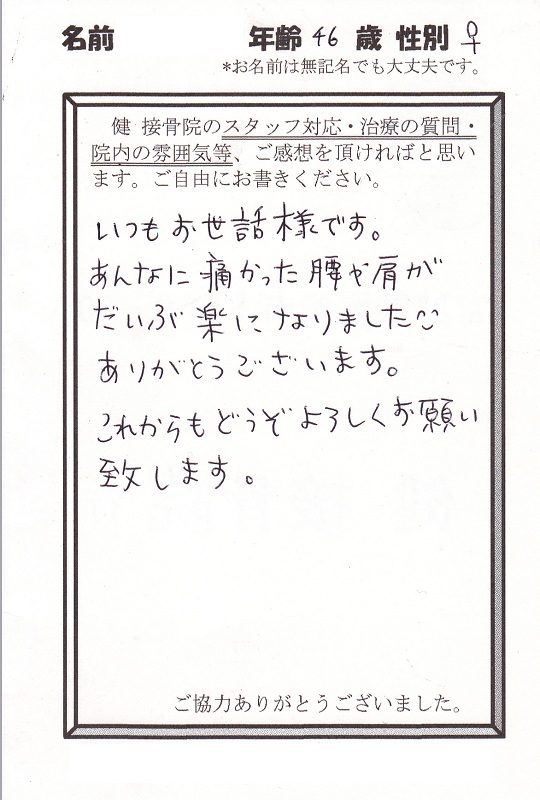 名前 年齢 46 歳 性別 ♀
*お名前は無記名でも大丈夫です。
健 接骨院のスタッフ対応・治療の質問・
院内の雰囲気等、ご感想を頂ければと思い
ます。ご自由にお書きください。
いつもお世話様です。
あんなに痛かった腰や肩が
だいぶ楽になりました☺
ありがとうございます。
これからもどうぞよろしくお願い
致します。
ご協力ありがとうございました。